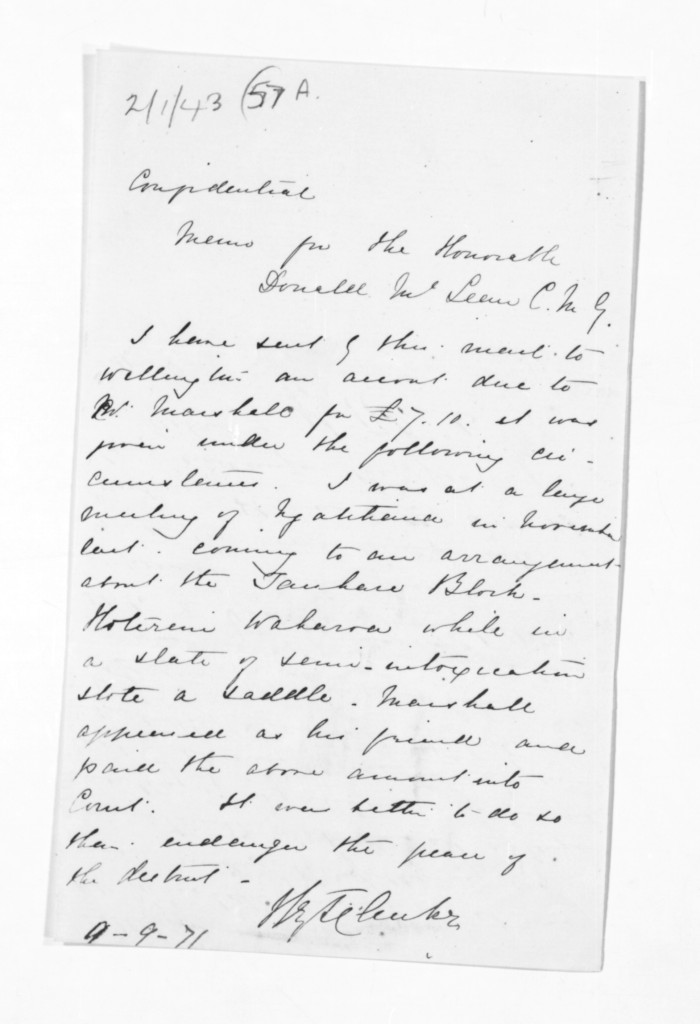 2/1/43 (57 A.
Confidential
Memo for the Honorable
Donald McLean C.M.G.
I have sent by this mail to
Wellington an account due to
W. Marshall for £7.10. it was
given under the following cir-
cumstances. I was at a large
meeting of Ngatihaua in November
last. coming to an arrangement
about the Block -
Hotereni Waharoa while in
a state of semi-intoxication
stole a saddle - Marshall
appeared as his friend and
paid the above amount into
Court. It was better to do so
than endanger the peace of
the district -
9-9-71